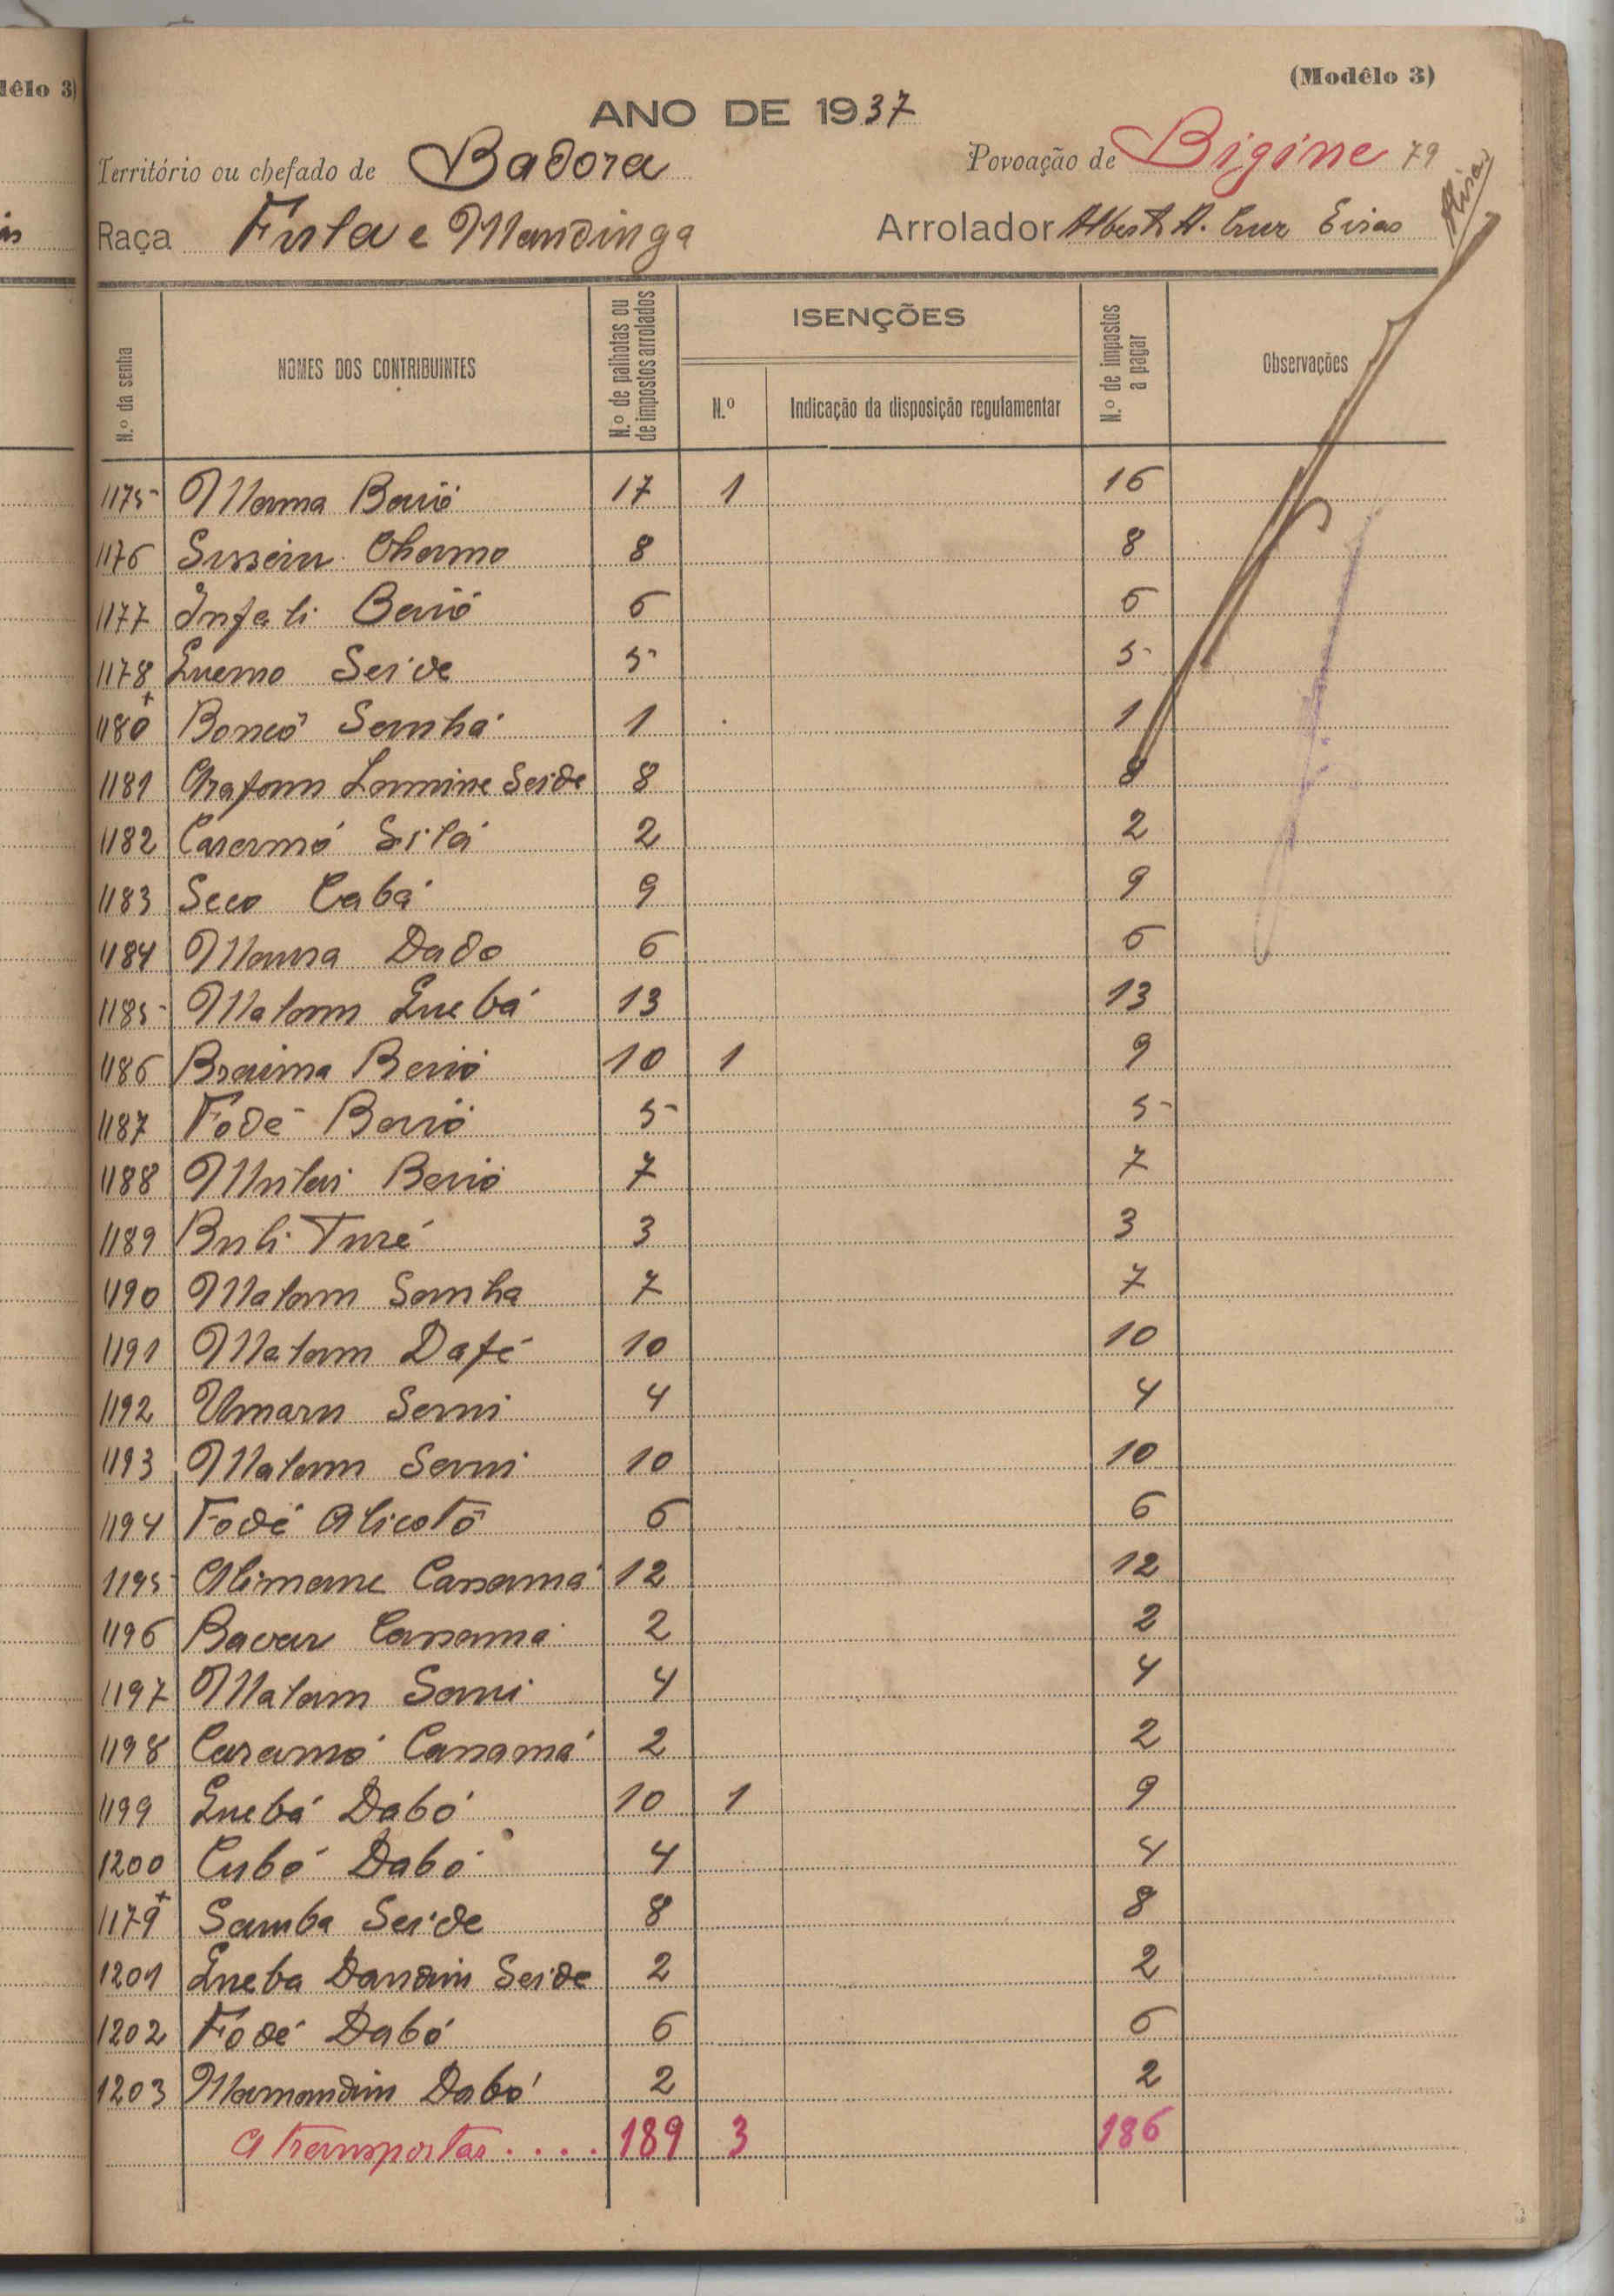 (Modêlo 3)
dêlo 3)
ANO DE 1937
Território ou chefado de Badora Povoação de Bigine 79
Raça Fula e Mandinga Arrolador Alberto A. Cruz Eiras
N.º da senha NOMES DOS CONTRIBUINTES N.º de palhotas ou de impostos arrolados ISENÇÕES N.º Indicação da disposição regulamentar N.º de impostos a pagar Observações
1175 Mama Baió 17 1 16
1176 Sussein 8 8
1177 Infali Baió 6 6
1178 Quemo Seide 5 5
1180 + Boncó Sanhá 1 1
1181 Arafam Lamine Seide 8 8
1182 Caramó Silá 2 2
1183 Seco Cabá 9 9
1184 Mansa Dado 6 6
1185 Malam Quebá 13 13
1186 Braima Baió 10 1 9
1187 Fodé Baió 5 5
1188 Mutar Baió 7 7
1189 Buli Turé 3 3
1190 Malam Sanha 7 7
1191 Malam Dafé 10 10
1192 Umaru Sani 4 4
1193 Malam Sani 10 10
1194 Fodé Alicotó 6 6
1195 Alimane Cassamá 12 12
1196 Bacar Cassama 2 2
1197 Malam Sani 4 4
1198 Caramó Cassamá 2 2
1199 Quebá Dabó 10 1 9
1200 Cubó Dabó 4 4
1179 + Samba Seide 8 8
1201 Queba Dandin Seide 2 2
1202 Fodé Dabó 6 6
1203 Mamandin Dabó 2 2
A transportar.... 189 3 186